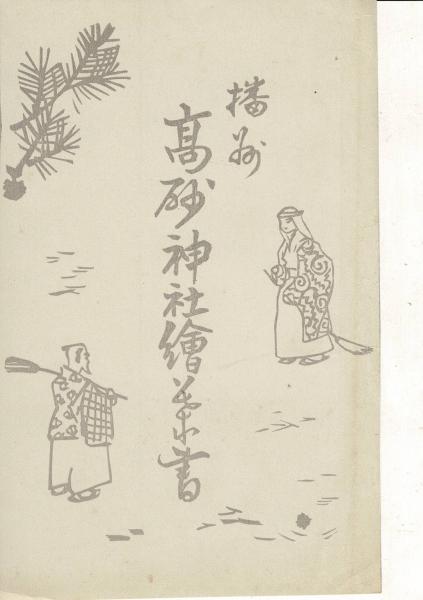 播州
高砂神社繪葉書